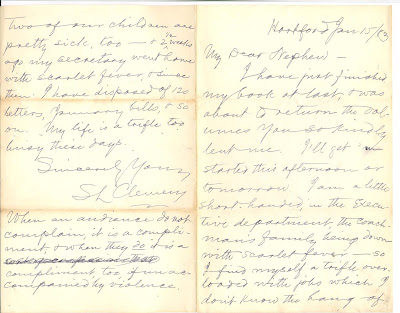 Hartford Jan 15/83
My Dear Nephew —
I have just finished
my book at last, & was
about to return the vol-
umes you so kindly
lent me. I'll get 'em
started this afternoon or
tomorrow. I am a little
short-handed, in the Execu-
tive department, the coach-
man's family being down
with scarlet fever — so
I find myself a trifle over-
loaded with jobs which I
don't know the hang of
Two of our children are
pretty sick, too — & 2 1/2 weeks
ago my secretary went home
with scarlet fever, & since
then I have disposed of 120
letters, January bills, & so
on. My life is a trifle too
busy these days.
Sincerely Yours
SL Clemens
When an audience do not
complain, it is a compli-
ment, & when they do it is a
compliment too, if unac-
companied by violence.